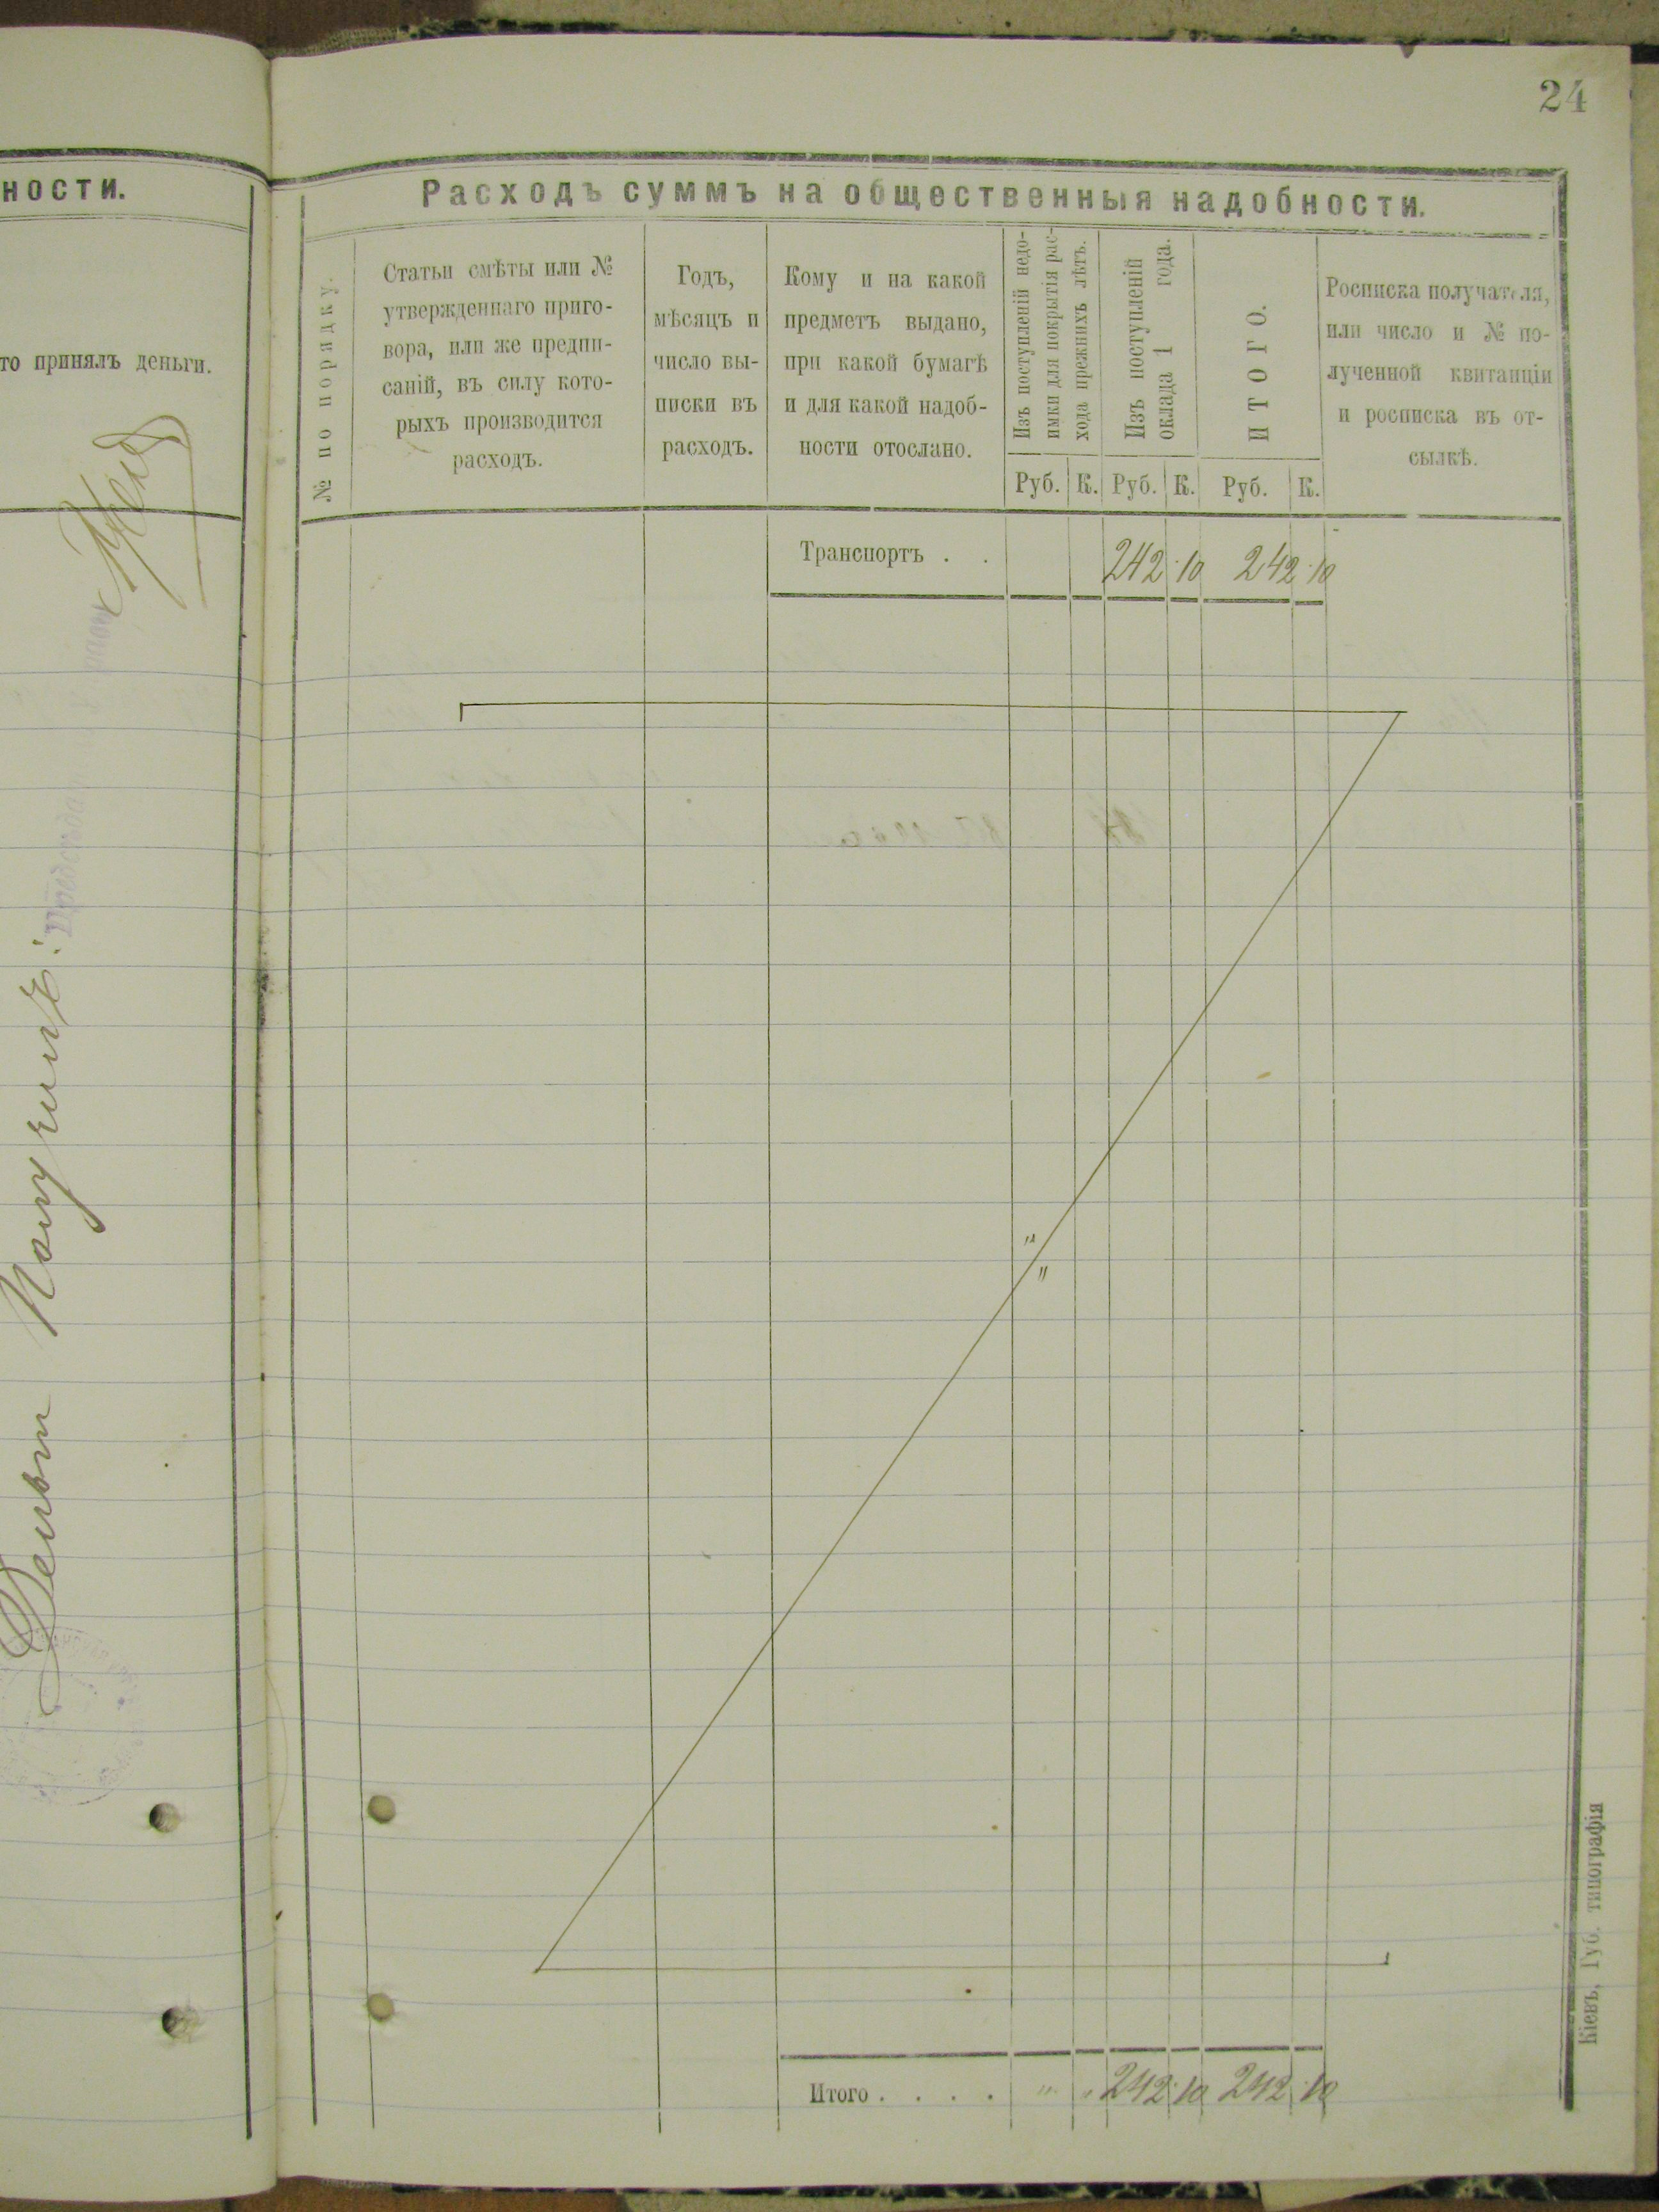 24
ности.
то принялъ деньги.
Расходъ суммъ на общественныя надобности.
№ по порядку.
Статьи смѣты или №
утвержденнаго приго-
вора, или же предпи-
саній, въ силу кото-
рыхъ производится
расходъ.
Годъ,
мѣсяцъ и
число вы-
писки въ
расходъ.
Кому и на какой
предметъ выдано,
при какой бумагѣ
и для какой надоб-
ности отослано.
Изъ поступленій недо-
имки для покрытія рас-
хода прежнихъ лѣтъ.
Изъ поступленій
оклада 1 года.
ИТОГО.
Росписка получателя,
или число и № по-
лученной квитанціи
и росписка въ от-
сылкѣ.
Руб. К. Руб. К. Руб. К.
Транспортъ . . 242 10 242 10
" "
Итого . . . . " " 242 10 242 10
Кіевъ, Губ. типографія